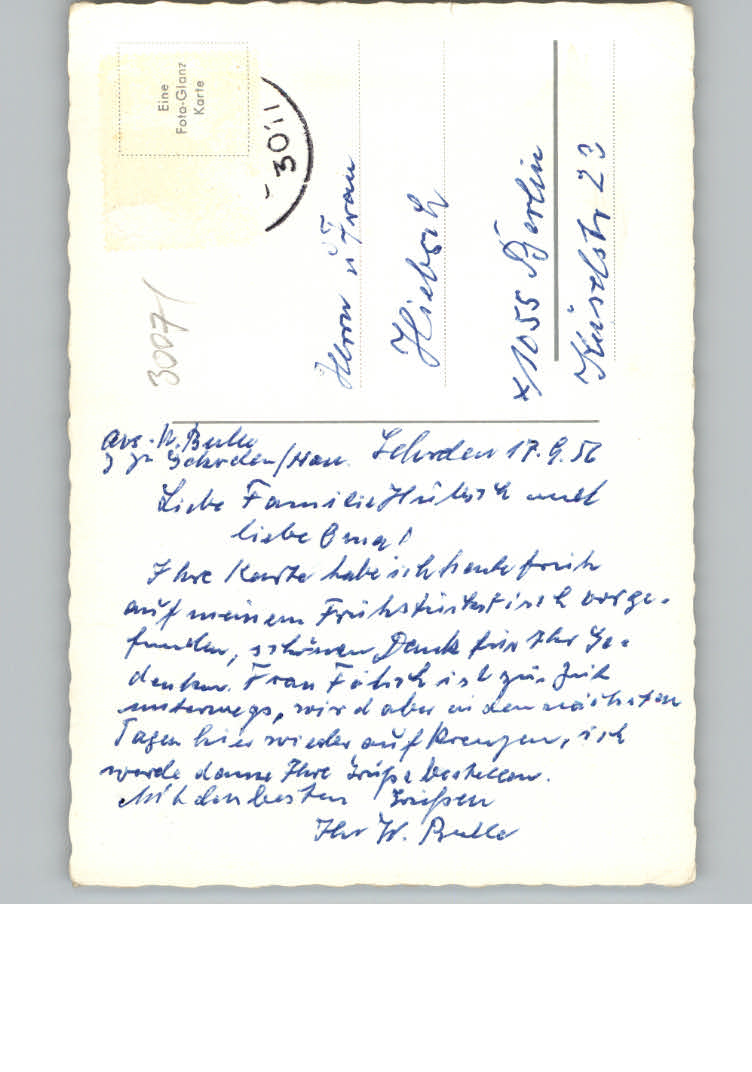 Eine
Foto-Glanz
Karte
30.11
3007/
Herrn u Frau
Hiebsch
x 1055 Berlin
23
Abs. W.
3 Gehrden/Han.
Gehrden 17.9.56
Liebe Familie Hiebsch und
liebe Oma!
Ihre Karte habe ich heute früh
auf meinem Frühstückstisch vorge-
funden, schönen Dank für Ihr Ge-
denken. Frau ist zur Zeit
unterwegs, wird aber in den nächsten
Tagen hier wieder auf Kreuzen, ich
werde dann Ihre Grüße bestellen.
Mit den besten Grüßen
Ihr W.